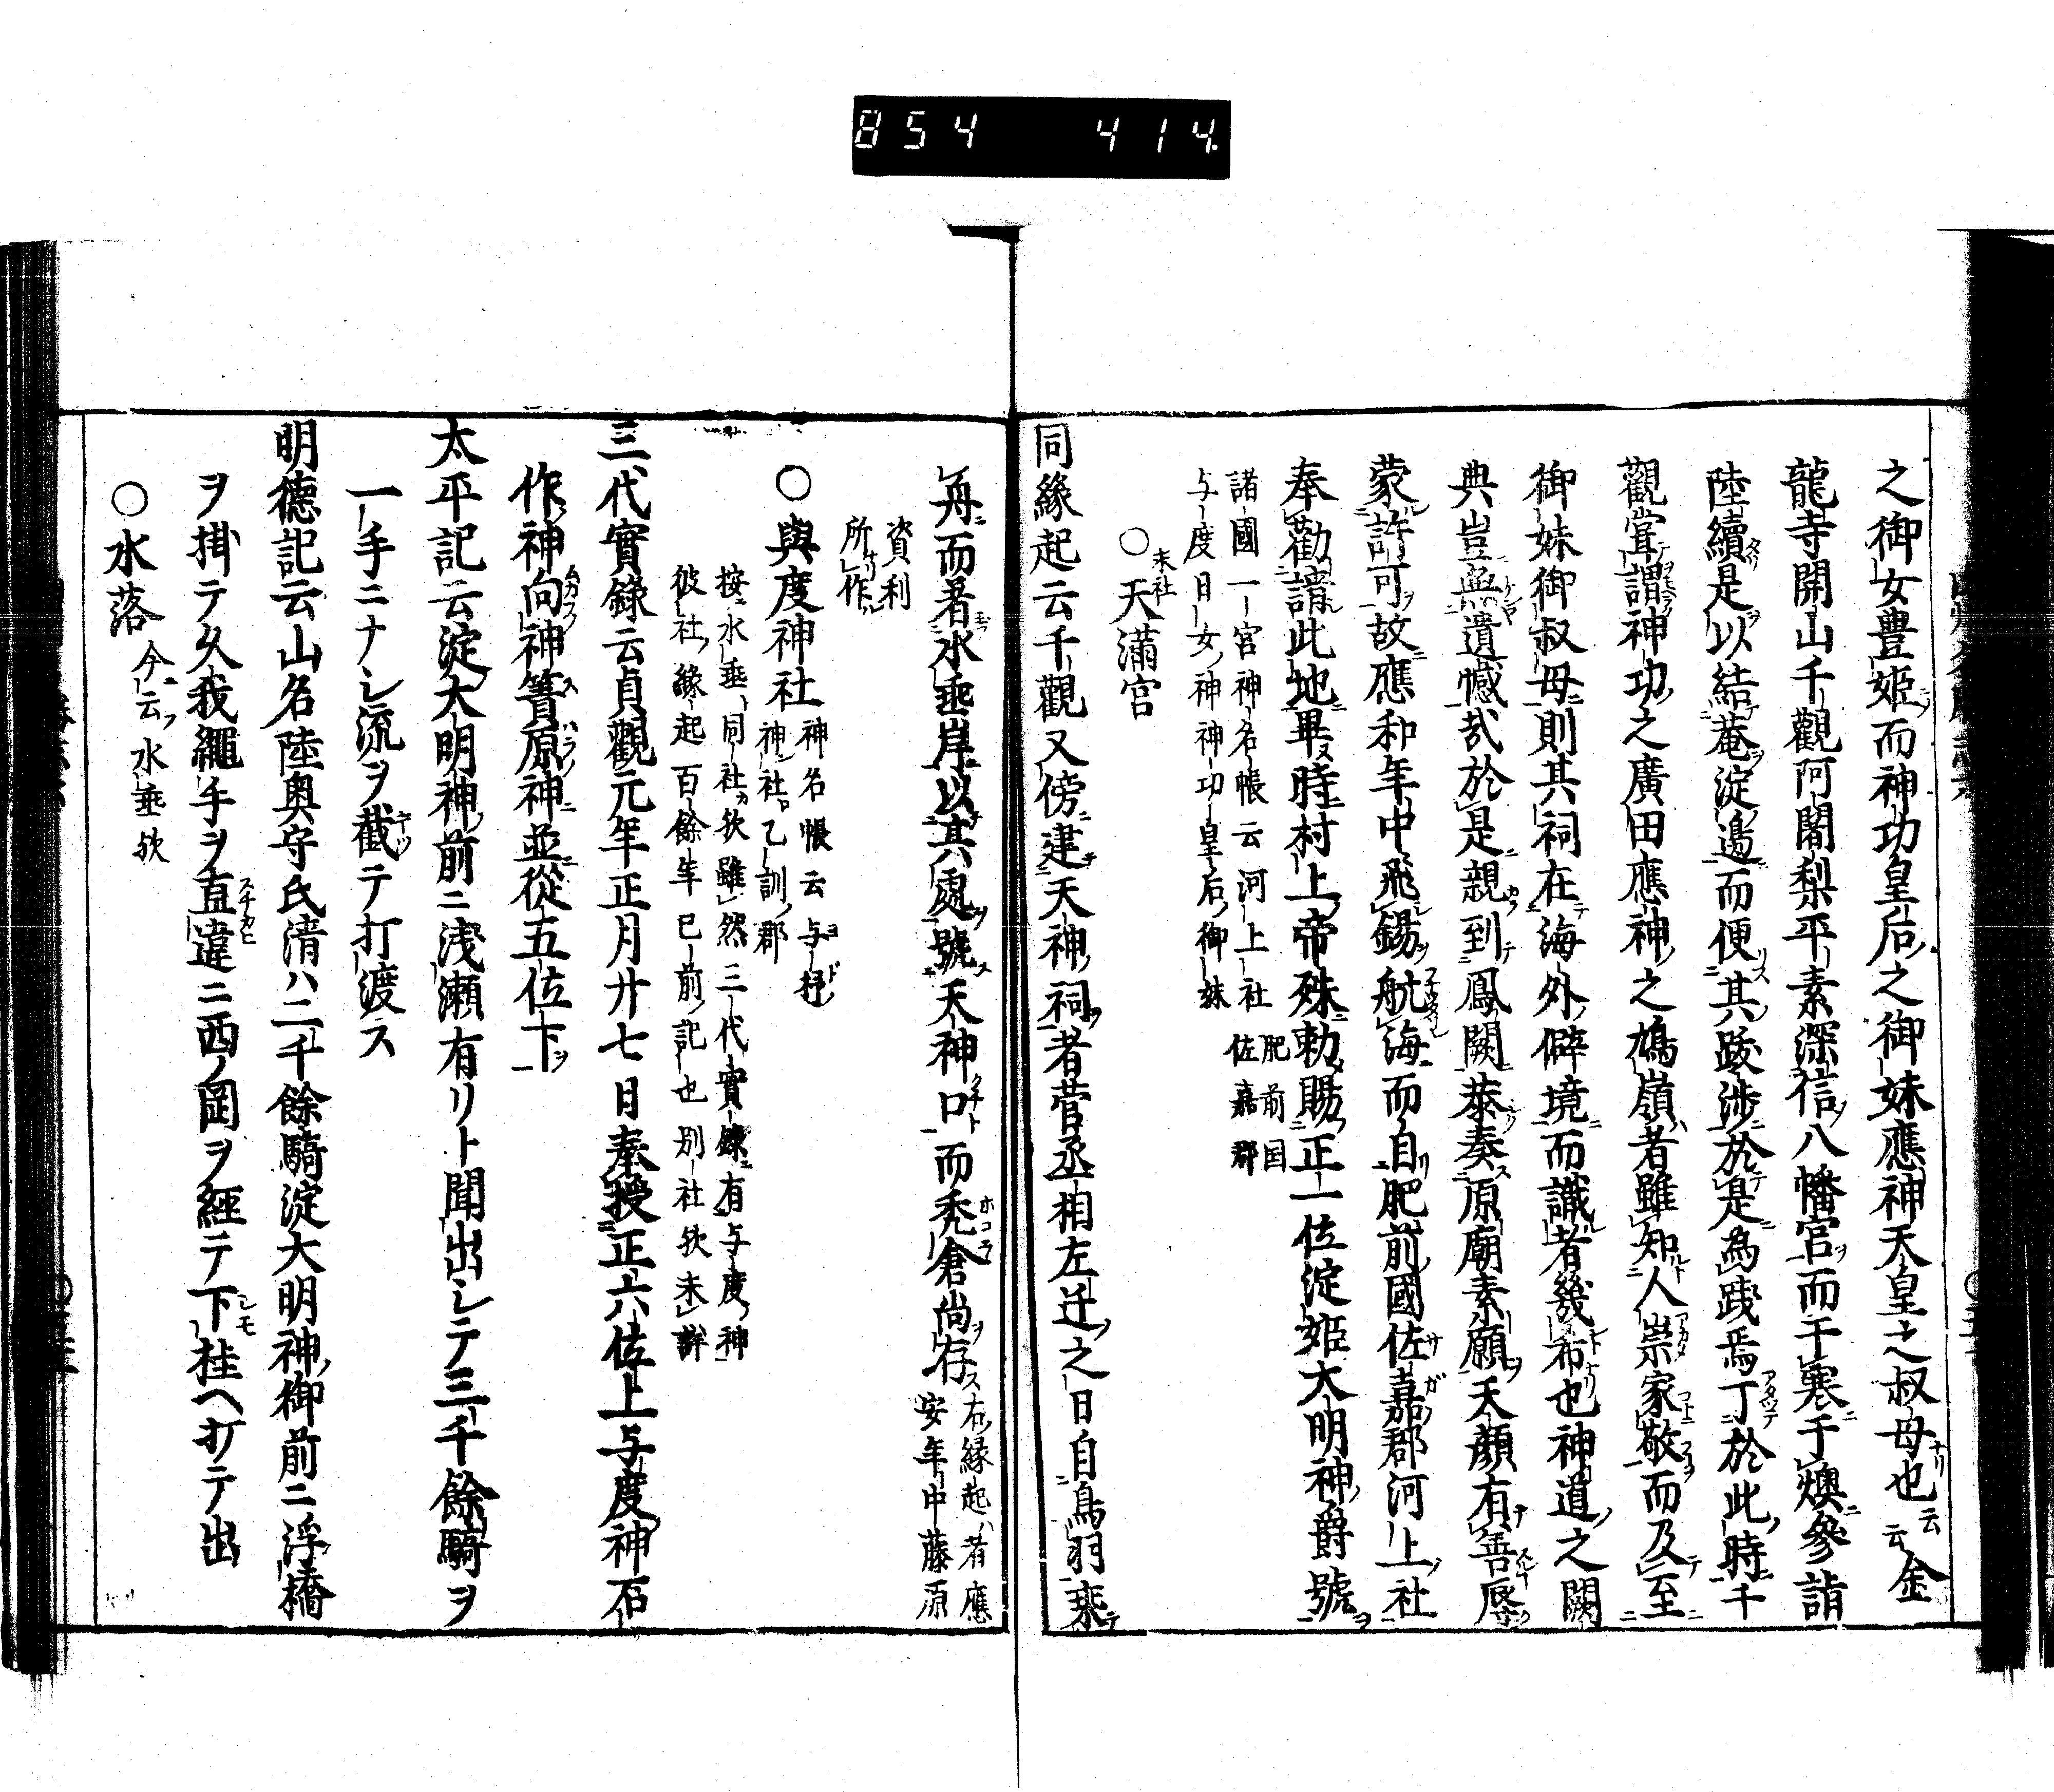 854 414.
之御女豊姫而神功皇后之御妹應神天皇之叔母也云云金
龍寺開山千觀阿闍梨平素深信八幡宮而于寒于燠參詣
陸續是以結菴淀邉而便其跋渉於是為踐焉丁於此時千
觀嘗謂神功之廣田應神之鳩嶺者雖知人崇家敬而及至
御妹御叔母則其祠在海外僻境而識者幾希也神道之闕
典豈無遺憾哉於是親到鳳闕恭奏原廟素願天顔有善辱
蒙許可故應和年中飛錫航海而自肥前國佐嘉郡河上社
奉勸請此地畢又時村上帝殊勅賜正一位淀姫大明神爵號
諸國一宮神名帳云河上社肥前国佐嘉郡
与度日女神神功皇后御妹
○末社天滿宮
同緣起云千觀又傍建天神祠者菅丞相左迁之日自鳥羽乗
舟而着水垂岸以其處號天神口而禿倉尚存右縁起者應安年中藤原
資利所作
○與度神社神名帳云与杼神社乙訓郡
按水垂同社欤雖然三代實録有与度神
彼社緣起百餘年已前記也別社欤未詳
三代實錄云貞觀元年正月廿七日奉授正六位上与度神石
作神向神簀原神並從五位下
太平記云淀大明神前ニ浅瀬有リト聞出シテ三千餘騎ヲ
一手ニナシ流ヲ截テ打渡ス
明徳記云山名陸奥守氏清ハ二千餘騎淀大明神御前ニ浮橋
ヲ掛テ久我繩手ヲ直違ニ西ノ岡ヲ経テ下桂ヘ打テ出
○水落今云水垂欤